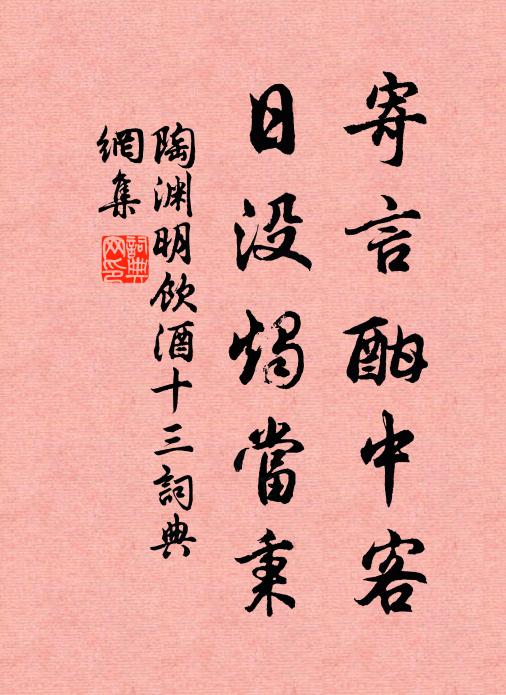 寄言酣中客
日没燭當秉
陶渊明飲酒十三詞典
網集
詞典
网印